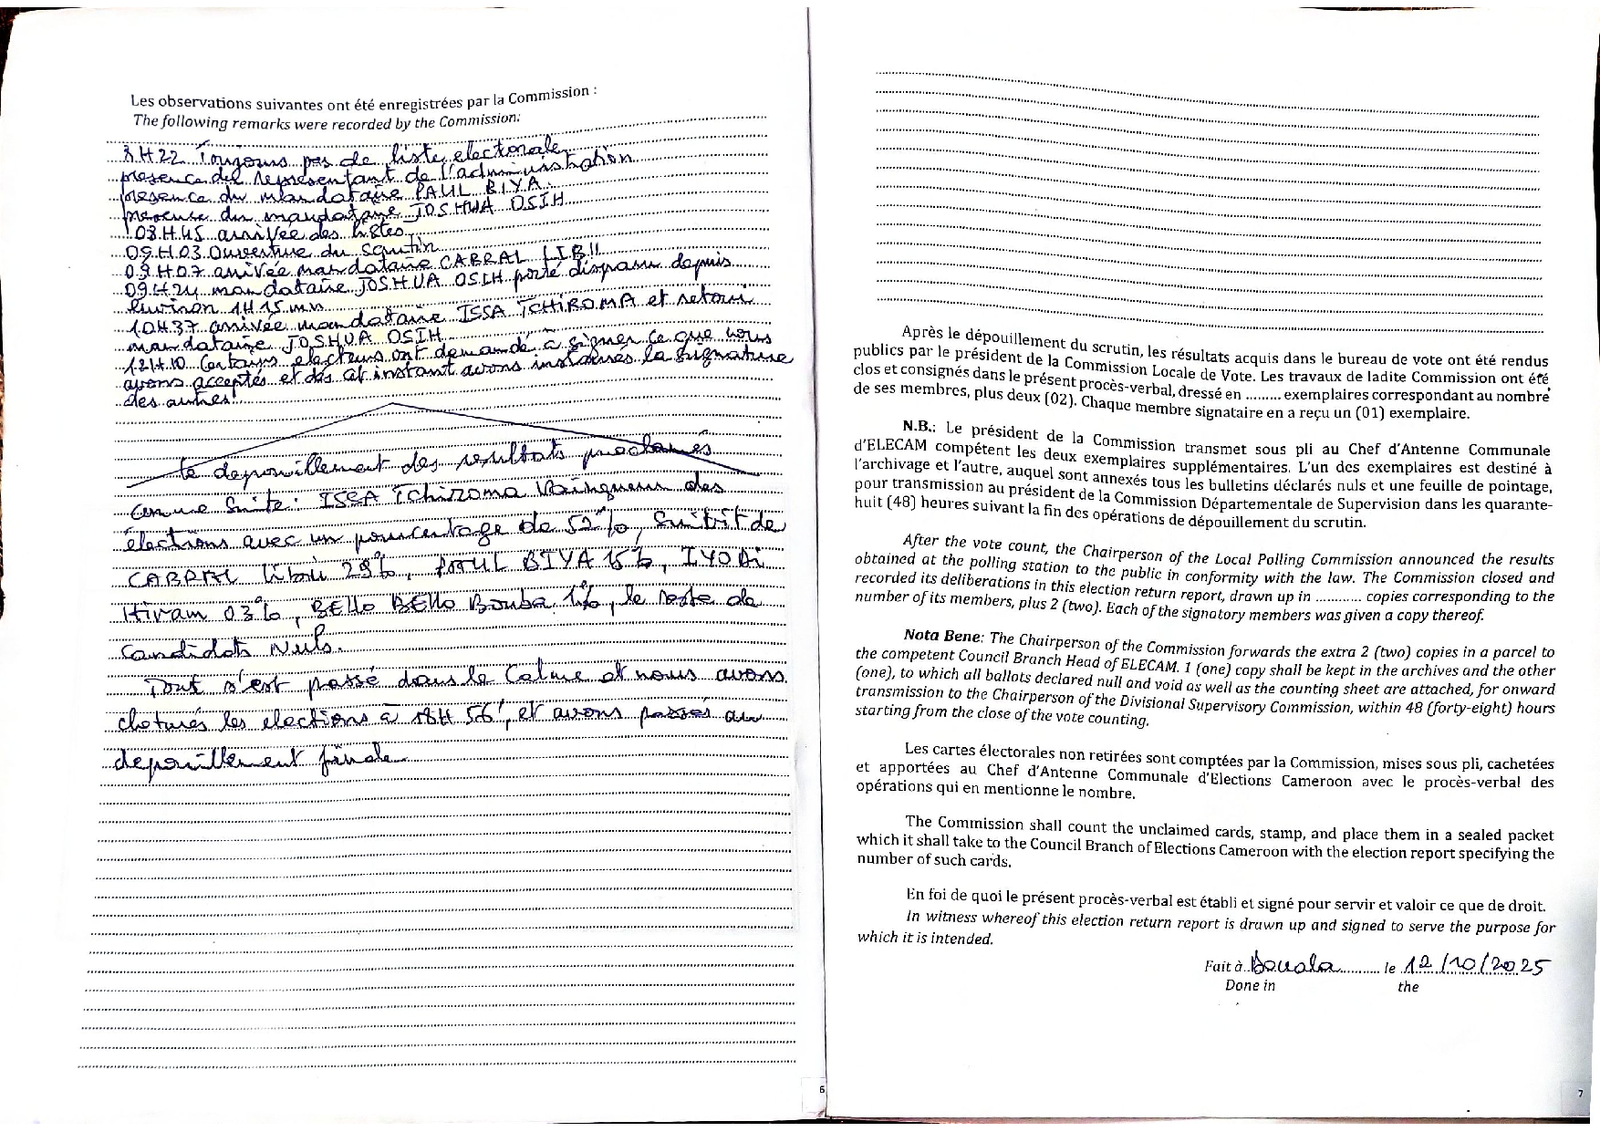 Les observations suivantes ont été enregistrées par la Commission :
The following remarks were recorded by the Commission:
8H22 Toujours pas de liste electorale
presence del representant de l'administration
presence du mandataire PAUL BIYA
presence du mandataire JOSHUA OSIH
08H45 arrivée des listes
09H03 Ouverture du scrutin
09H07 arrivée mandataire CABRAL LIBII
09H24 mandataire JOSHUA OSIH porté disparu depuis
environ 1H15 mn
10H37 arrivée mandataire ISSA TCHIROMA et retour
mandataire JOSHUA OSIH
12H10 Certains electeurs ont demandé à signer ce que nous
avons acceptés et dès cet instant avons instaurés la signature
des autres
le depouillement des resultats proclamés
comme Suite : ISSA Tchiroma Vainqueur des
élections avec un pourcentage de 52%, Suivit de
CABRAL libii 29%, PAUL BIYA 15%, IYODI
Hiram 03%, BEllo BEllo Bouba 1%, le reste de
Candidats Nuls.
Tout s'est passé dans le Calme et nous avons
cloturés les elections à 18H 56', et avons passés au
depouillement finale
6
Après le dépouillement du scrutin, les résultats acquis dans le bureau de vote ont été rendus
publics par le président de la Commission Locale de Vote. Les travaux de ladite Commission ont été
clos et consignés dans le présent procès-verbal, dressé en ......... exemplaires correspondant au nombre
de ses membres, plus deux (02). Chaque membre signataire en a reçu un (01) exemplaire.
N.B.: Le président de la Commission transmet sous pli au Chef d'Antenne Communale
d'ELECAM compétent les deux exemplaires supplémentaires. L'un des exemplaires est destiné à
l'archivage et l'autre, auquel sont annexés tous les bulletins déclarés nuls et une feuille de pointage,
pour transmission au président de la Commission Départementale de Supervision dans les quarante-
huit (48) heures suivant la fin des opérations de dépouillement du scrutin.
After the vote count, the Chairperson of the Local Polling Commission announced the results
obtained at the polling station to the public in conformity with the law. The Commission closed and
recorded its deliberations in this election return report, drawn up in ............ copies corresponding to the
number of its members, plus 2 (two). Each of the signatory members was given a copy thereof.
Nota Bene: The Chairperson of the Commission forwards the extra 2 (two) copies in a parcel to
the competent Council Branch Head of ELECAM. 1 (one) copy shall be kept in the archives and the other
(one), to which all ballots declared null and void as well as the counting sheet are attached, for onward
transmission to the Chairperson of the Divisional Supervisory Commission, within 48 (forty-eight) hours
starting from the close of the vote counting.
Les cartes électorales non retirées sont comptées par la Commission, mises sous pli, cachetées
et apportées au Chef d'Antenne Communale d'Elections Cameroon avec le procès-verbal des
opérations qui en mentionne le nombre.
The Commission shall count the unclaimed cards, stamp, and place them in a sealed packet
which it shall take to the Council Branch of Elections Cameroon with the election report specifying the
number of such cards.
En foi de quoi le présent procès-verbal est établi et signé pour servir et valoir ce que de droit.
In witness whereof this election return report is drawn up and signed to serve the purpose for
which it is intended.
Fait à Douala .......... le 12/10/2025
Done in the
7